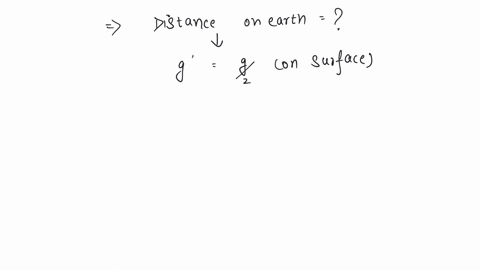 => Distance on earth = ?
↓
g' = g/2 (on surface)